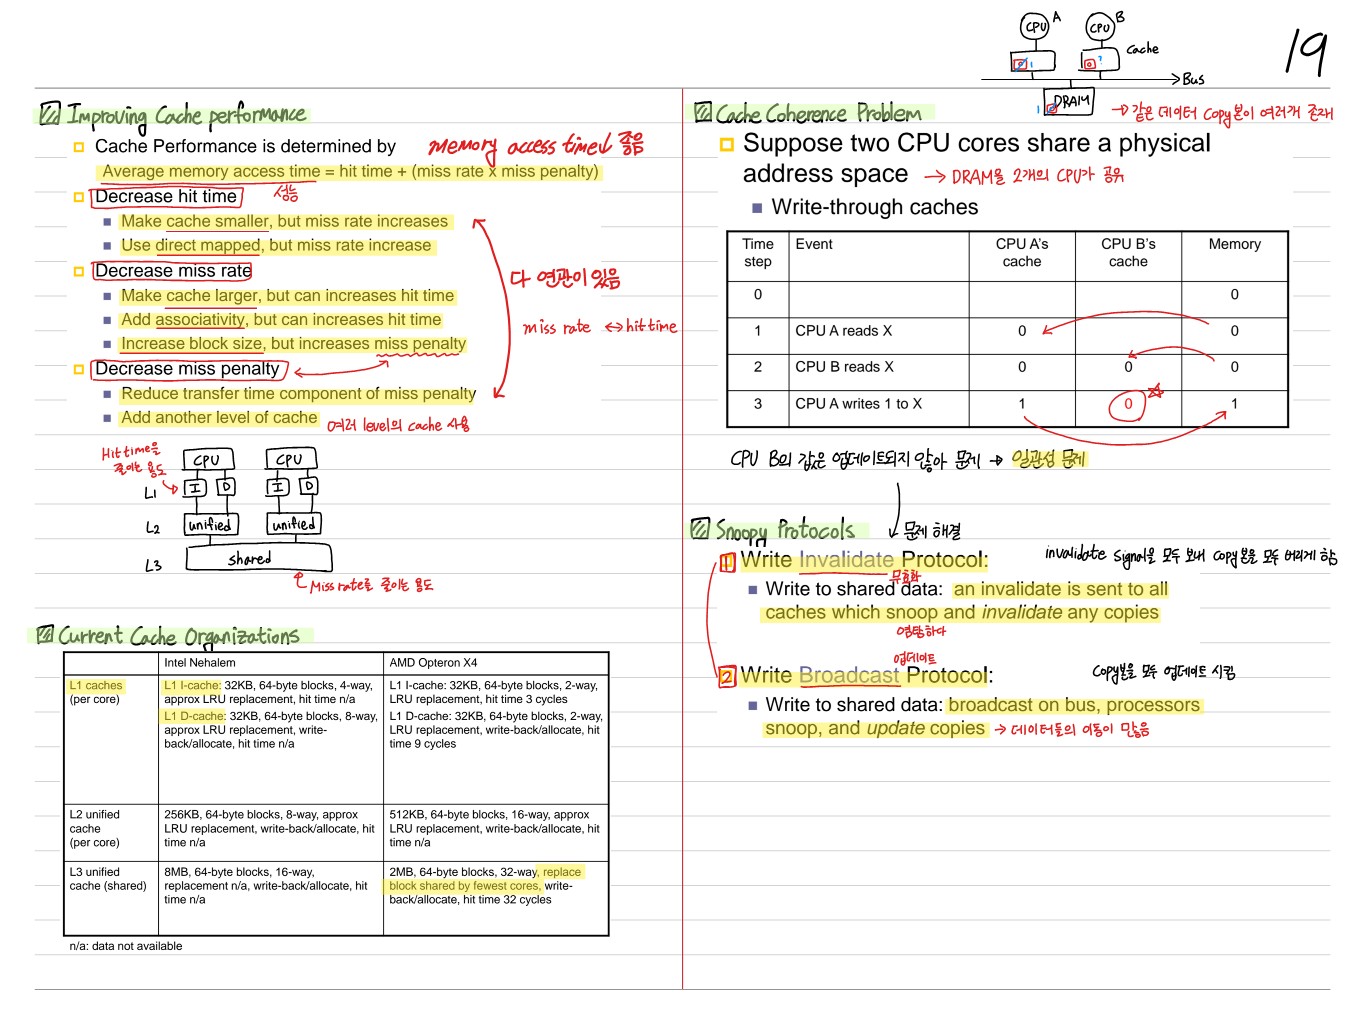 19
CPU A
CPU B
Cache
0 1
0 ?
Bus
1 0 DRAM
Improving Cache performance
Cache Performance is determined by
memory access time↓ 좋음
Average memory access time = hit time + (miss rate x miss penalty)
성능
Decrease hit time
Make cache smaller, but miss rate increases
Use direct mapped, but miss rate increase
Decrease miss rate
Make cache larger, but can increases hit time
Add associativity, but can increases hit time
Increase block size, but increases miss penalty
다 연관이 있음
miss rate ↔ hit time
Decrease miss penalty
Reduce transfer time component of miss penalty
Add another level of cache
여러 level의 cache 사용
Hit time을
줄이는 용도
CPU CPU
L1 I D I D
L2 unified unified
L3 shared
Miss rate를 줄이는 용도
Current Cache Organizations
Intel Nehalem
AMD Opteron X4
L1 caches
(per core)
L1 I-cache: 32KB, 64-byte blocks, 4-way,
approx LRU replacement, hit time n/a
L1 D-cache: 32KB, 64-byte blocks, 8-way,
approx LRU replacement, write-
back/allocate, hit time n/a
L1 I-cache: 32KB, 64-byte blocks, 2-way,
LRU replacement, hit time 3 cycles
L1 D-cache: 32KB, 64-byte blocks, 2-way,
LRU replacement, write-back/allocate, hit
time 9 cycles
L2 unified
cache
(per core)
256KB, 64-byte blocks, 8-way, approx
LRU replacement, write-back/allocate, hit
time n/a
512KB, 64-byte blocks, 16-way, approx
LRU replacement, write-back/allocate, hit
time n/a
L3 unified
cache (shared)
8MB, 64-byte blocks, 16-way,
replacement n/a, write-back/allocate, hit
time n/a
2MB, 64-byte blocks, 32-way, replace
block shared by fewest cores, write-
back/allocate, hit time 32 cycles
n/a: data not available
Cache Coherence Problem
→ 같은 데이터 Copy본이 여러개 존재
Suppose two CPU cores share a physical
address space → DRAM을 2개의 CPU가 공유
Write-through caches
Time
step
Event
CPU A's
cache
CPU B's
cache
Memory
0 0
1 CPU A reads X 0 0
2 CPU B reads X 0 0 0
3 CPU A writes 1 to X 1 0 1
CPU B의 값은 업데이트되지 않아 문제 → 일관성 문제
Snoopy Protocols
문제 해결
1 Write Invalidate Protocol:
무효화
invalidate signal을 모두 보내 Copy본을 모두 버리게 함
Write to shared data: an invalidate is sent to all
caches which snoop and invalidate any copies
염탐하다
업데이트
2 Write Broadcast Protocol:
Copy본을 모두 업데이트 시킴
Write to shared data: broadcast on bus, processors
snoop, and update copies → 데이터들의 이동이 많음